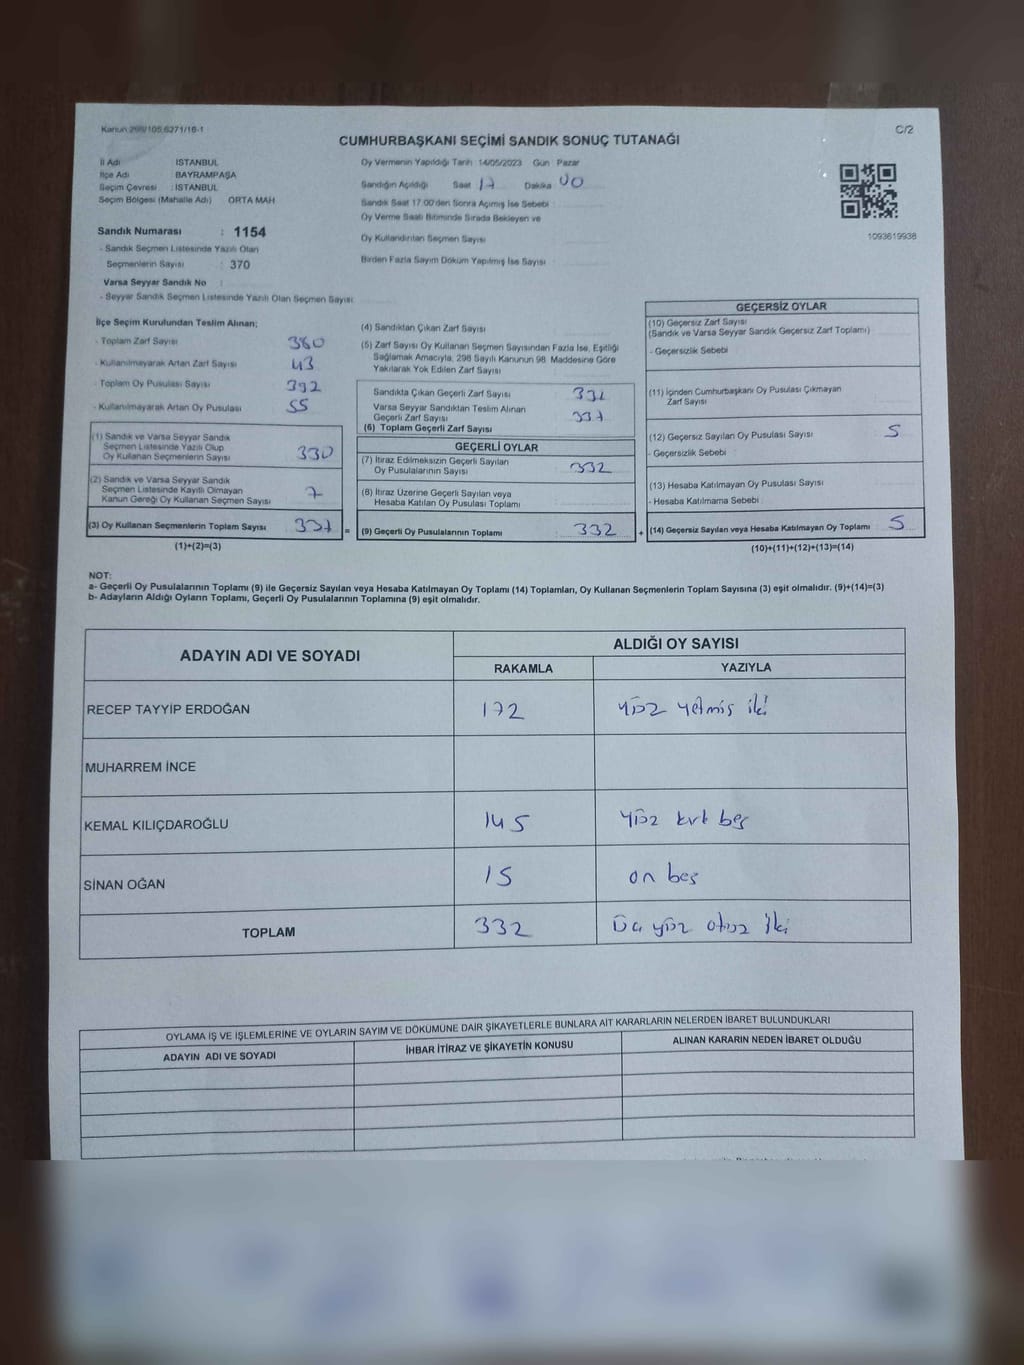 Kanun 298/105,6271/16-1
C/2
CUMHURBAŞKANI SEÇİMİ SANDIK SONUÇ TUTANAĞI
İl Adı : İSTANBUL
İlçe Adı : BAYRAMPAŞA
Seçim Çevresi : İSTANBUL
Seçim Bölgesi (Mahalle Adı) ORTA MAH
Sandık Numarası : 1154
- Sandık Seçmen Listesinde Yazılı Olan
Seçmenlerin Sayısı : 370
Varsa Seyyar Sandık No :
- Seyyar Sandık Seçmen Listesinde Yazılı Olan Seçmen Sayısı
Oy Vermenin Yapıldığı Tarih 14/05/2023 Gün Pazar
Sandığın Açıldığı Saat 17 Dakika 00
Sandık Saat 17.00'den Sonra Açımış İse Sebebi
Oy Verme Saati Bitiminde Sırada Bekleyen ve
Oy Kullandırılan Seçmen Sayısı
Birden Fazla Sayım Döküm Yapılmış İse Sayısı
1093619938
İlçe Seçim Kurulundan Teslim Alınan;
- Toplam Zarf Sayısı 380
- Kullanılmayarak Artan Zarf Sayısı 43
- Toplam Oy Pusulası Sayısı 392
- Kullanılmayarak Artan Oy Pusulası 55
(1) Sandık ve Varsa Seyyar Sandık
Seçmen Listesinde Yazılı Olup
Oy Kullanan Seçmenlerin Sayısı 330
(2) Sandık ve Varsa Seyyar Sandık
Seçmen Listesinde Kayıtlı Olmayan
Kanun Gereği Oy Kullanan Seçmen Sayısı 7
(3) Oy Kullanan Seçmenlerin Toplam Sayısı 337 =
(1)+(2)=(3)
(4) Sandıktan Çıkan Zarf Sayısı
(5) Zarf Sayısı Oy Kullanan Seçmen Sayısından Fazla İse, Eşitliği
Sağlamak Amacıyla, 298 Sayılı Kanunun 98. Maddesine Göre
Yakılarak Yok Edilen Zarf Sayısı
Sandıkta Çıkan Geçerli Zarf Sayısı
Varsa Seyyar Sandıktan Teslim Alınan
Geçerli Zarf Sayısı 337
(6) Toplam Geçerli Zarf Sayısı
GEÇERLİ OYLAR
(7) İtiraz Edilmeksizin Geçerli Sayılan
Oy Pusulalarının Sayısı 332
(8) İtiraz Üzerine Geçerli Sayılan veya
Hesaba Katılan Oy Pusulası Toplamı
(9) Geçerli Oy Pusulalarının Toplamı 332 +
GEÇERSİZ OYLAR
(10) Geçersiz Zarf Sayısı
(Sandık ve Varsa Seyyar Sandık Geçersiz Zarf Toplamı)
- Geçersizlik Sebebi
(11) İçinden Cumhurbaşkanı Oy Pusulası Çıkmayan
Zarf Sayısı
(12) Geçersiz Sayılan Oy Pusulası Sayısı 5
- Geçersizlik Sebebi
(13) Hesaba Katılmayan Oy Pusulası Sayısı
- Hesaba Katılmama Sebebi
(14) Geçersiz Sayılan veya Hesaba Katılmayan Oy Toplamı 5
(10)+(11)+(12)+(13)=(14)
NOT:
a- Geçerli Oy Pusulalarının Toplamı (9) ile Geçersiz Sayılan veya Hesaba Katılmayan Oy Toplamı (14) Toplamları, Oy Kullanan Seçmenlerin Toplam Sayısına (3) eşit olmalıdır. (9)+(14)=(3)
b- Adayların Aldığı Oyların Toplamı, Geçerli Oy Pusulalarının Toplamına (9) eşit olmalıdır.
ADAYIN ADI VE SOYADI ALDIĞI OY SAYISI
RAKAMLA YAZIYLA
RECEP TAYYİP ERDOĞAN 172 yüz yetmiş iki
MUHARREM İNCE
KEMAL KILIÇDAROĞLU 145 yüz kırk beş
SİNAN OĞAN 15 on beş
TOPLAM 332 üç yüz otuz iki
OYLAMA İŞ VE İŞLEMLERİNE VE OYLARIN SAYIM VE DÖKÜMÜNE DAİR ŞİKAYETLERLE BUNLARA AİT KARARLARIN NELERDEN İBARET BULUNDUKLARI
ADAYIN ADI VE SOYADI İHBAR İTİRAZ VE ŞİKAYETİN KONUSU ALINAN KARARIN NEDEN İBARET OLDUĞU